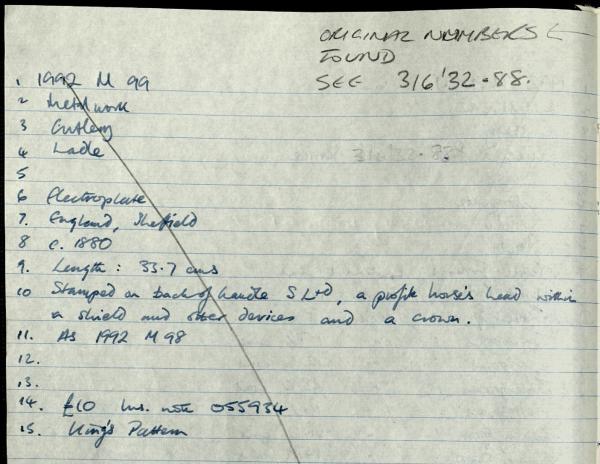 ORIGINAL NUMBERS
FOUND
SEE 316'32-88.
1 1992 M 99
2 Metalwork
3 Cutlery
4 Ladle
5
6 Electroplate
7. England, Sheffield
8 c. 1880
9. Length : 33.7 cms
10 Stamped on back of handle S L+D, a profile horse's head within
a shield and other devices and a crown.
11. As 1992 M 98
12.
13.
14. £10 Ins. note 055934
15. King's Pattern